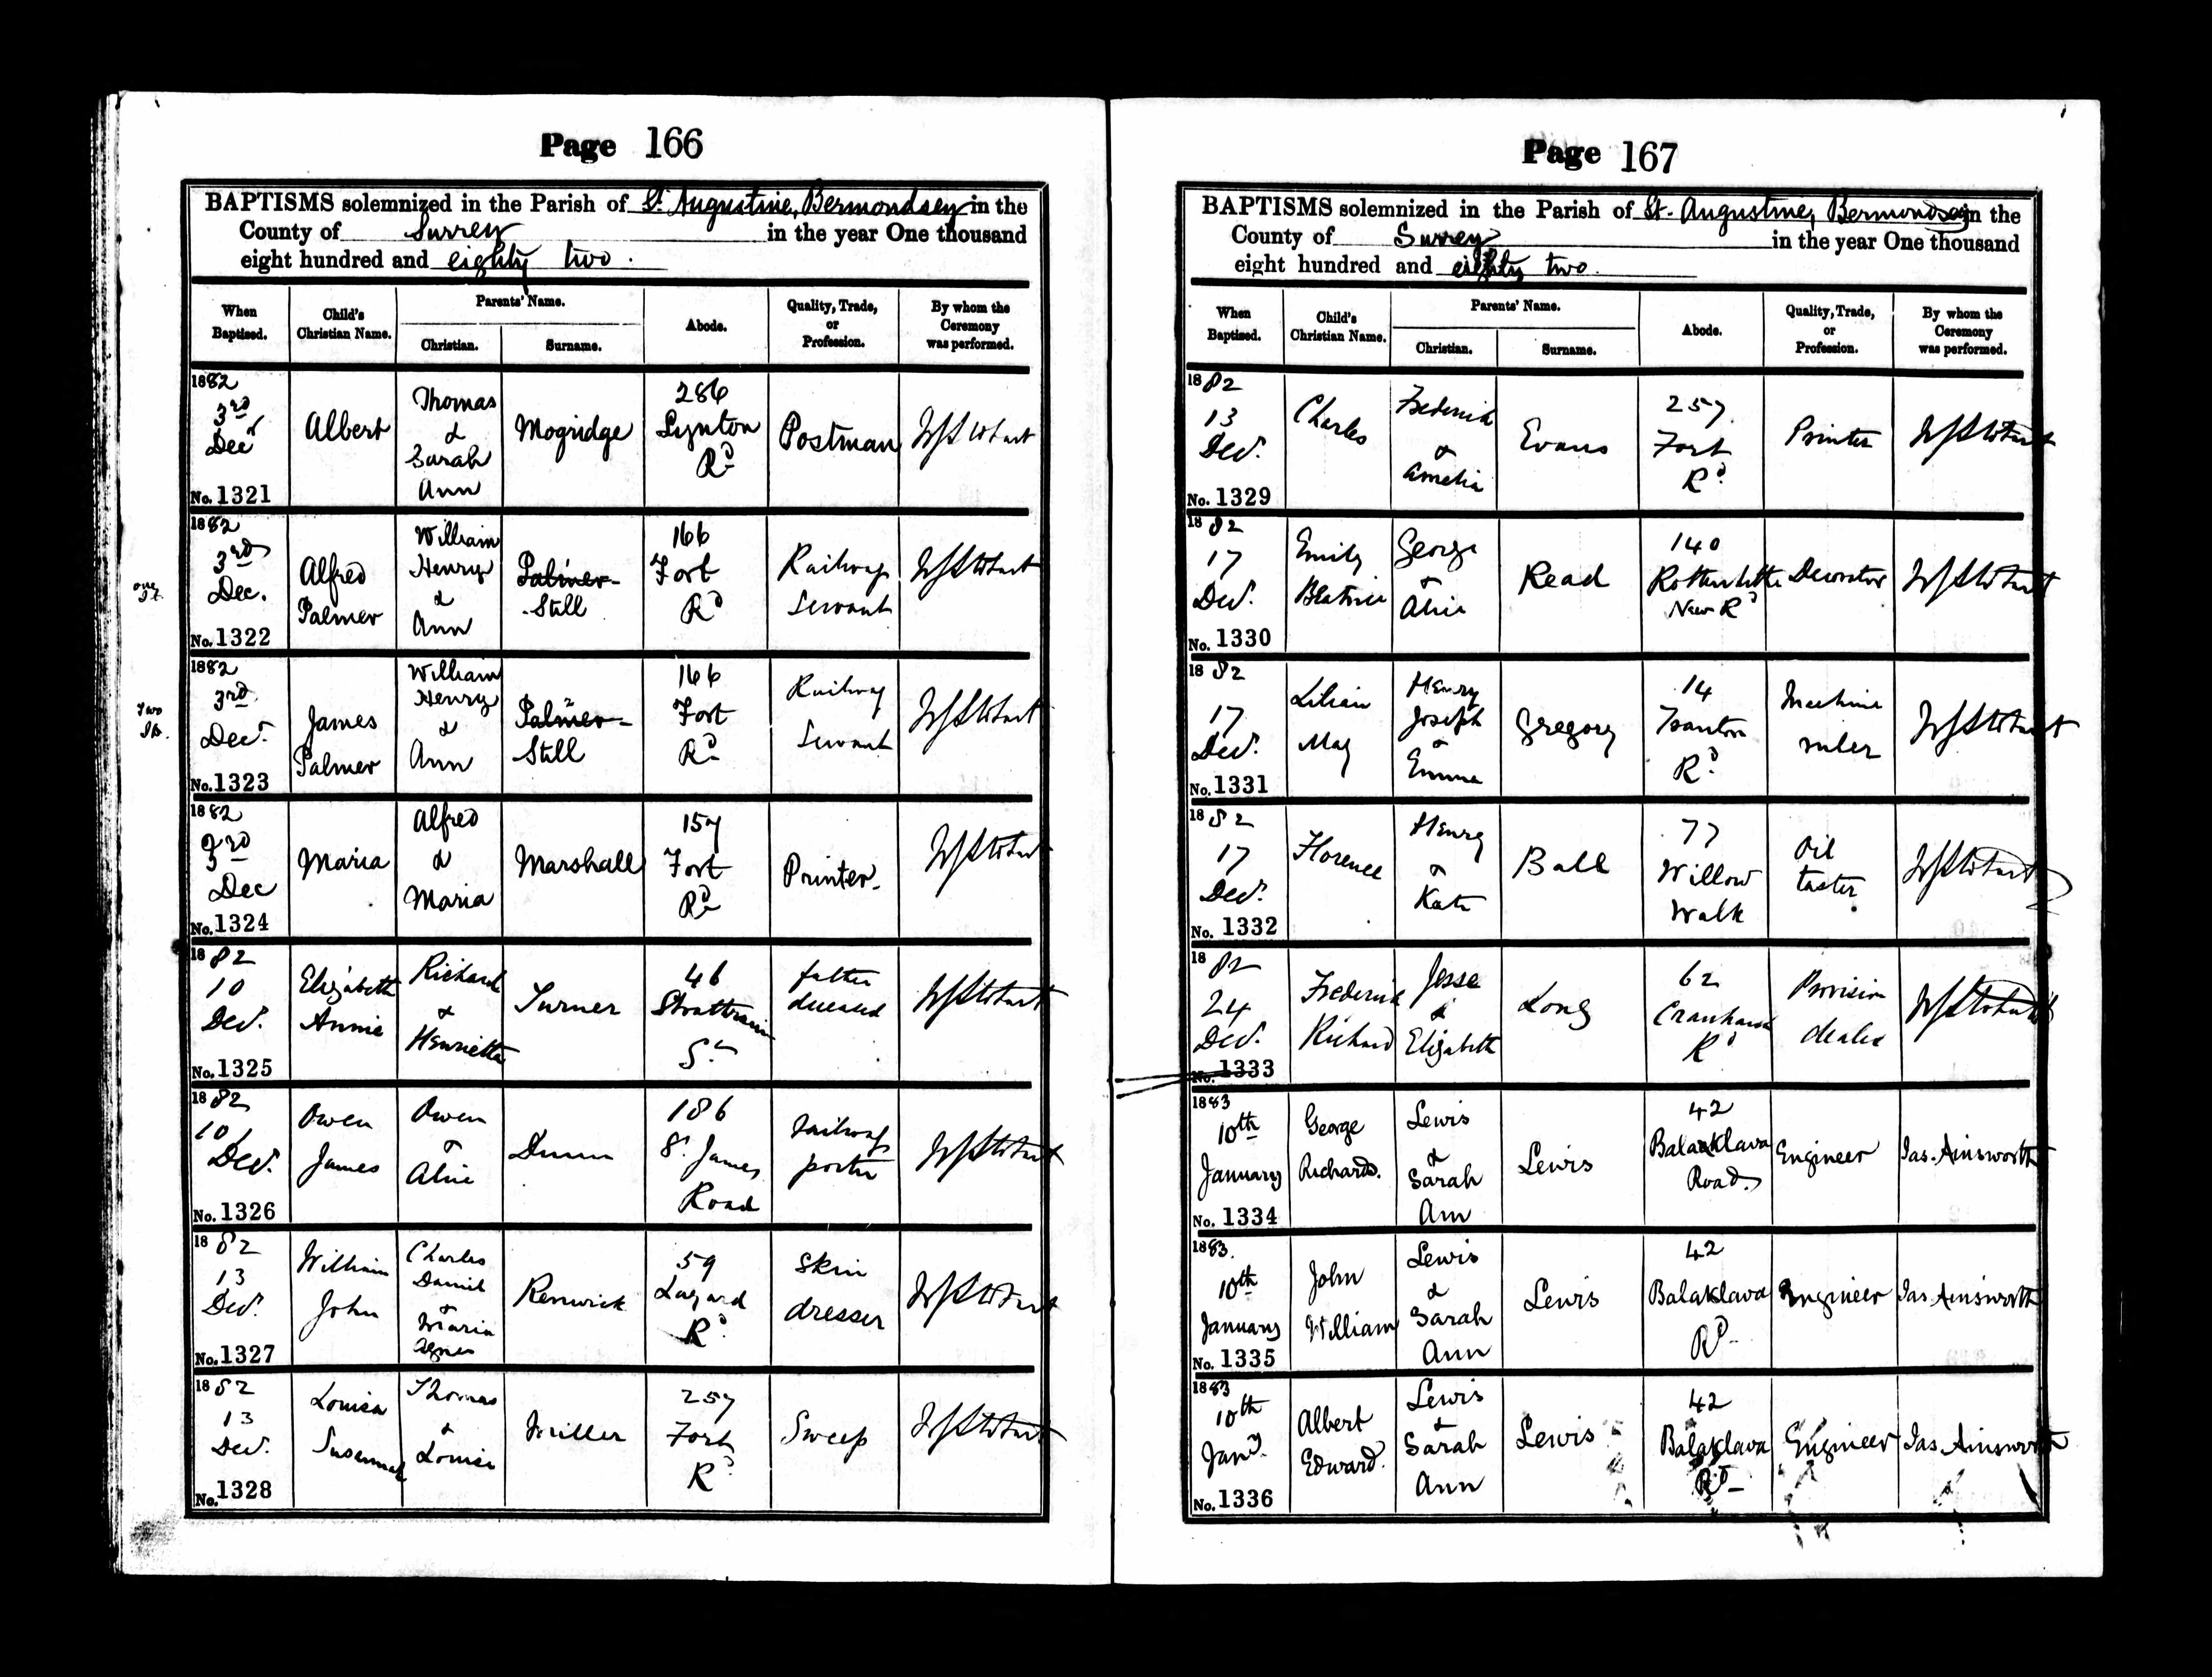 Page 166
BAPTISMS solemnized in the Parish of St. Augustine, Bermondsey in the
County of Surrey in the year One thousand
eight hundred and eighty two.
When Baptised.
Child's Christian Name.
Parents' Name.
Christian.
Surname.
Abode.
Quality, Trade, or Profession.
By whom the Ceremony was performed.
1882
3rd
Decr
No. 1321
Albert
Thomas
&
Sarah
Ann
Mogridge
286
Lynton
Rd
Postman
one
1882
3rd
Dec.
No. 1322
Alfred
Palmer
William
Henry
&
Ann
Palmer
Still
166
Fort
Rd
Railway
Servant
two
1882
3rd
Decr.
No. 1323
James
Palmer
William
Henry
&
Ann
Palmer
Still
166
Fort
Rd
Railway
Servant
1882
3rd
Dec
No. 1324
Maria
Alfred
&
Maria
Marshall
157
Fort
Rd
Printer.
1882
10
Decr.
No. 1325
Elizabeth
Annie
Richard
&
Henrietta
Turner
46
St
father
deceased
1882
10
Decr.
No. 1326
Owen
James
Owen
&
Alice
Dunn
186
St James
Road
railway
porter
1882
13
Decr.
No. 1327
William
John
Charles
Daniel
&
Maria
Agnes
Renwick
59
Layard
Rd
Skin
dresser
1882
13
Decr.
No. 1328
Louisa
Susannah
Thomas
&
Louisa
Miller
257
Fort
Rd
Sweep
Page 167
BAPTISMS solemnized in the Parish of St. Augustine, Bermondsey in the
County of Surrey in the year One thousand
eight hundred and eighty two.
When Baptised.
Child's Christian Name.
Parents' Name.
Christian.
Surname.
Abode.
Quality, Trade, or Profession.
By whom the Ceremony was performed.
1882
13
Decr.
No. 1329
Charles
Frederick
&
Amelia
Evans
257
Fort
Rd
Printer
1882
17
Decr.
No. 1330
Emily
Beatrice
George
&
Alice
Read
140
New Rd
Decorator
1882
17
Decr.
No. 1331
Lilian
May
Henry
Joseph
&
Emma
Gregory
14
Rd
Machine
ruler
1882
17
Decr.
No. 1332
Florence
Henry
&
Kate
Ball
77
Willow
Walk
Oil
taster
1882
24
Decr.
No. 1333
Frederick
Richard
Jesse
&
Elizabeth
Long
62
Rd
Provision
dealer
1883
10th
January
No. 1334
George
Richard.
Lewis
&
Sarah
Ann
Lewis
42
Balaklava
Road.
Engineer
Jas. Ainsworth
1883.
10th
January
No. 1335
John
William
Lewis
&
Sarah
Ann
Lewis
42
Balaklava
Rd
Engineer
Jas Ainsworth
1883
10th
Jany.
No. 1336
Albert
Edward.
Lewis
&
Sarah
Ann
Lewis
42
Balaklava
Rd
Engineer
Jas. Ainsworth